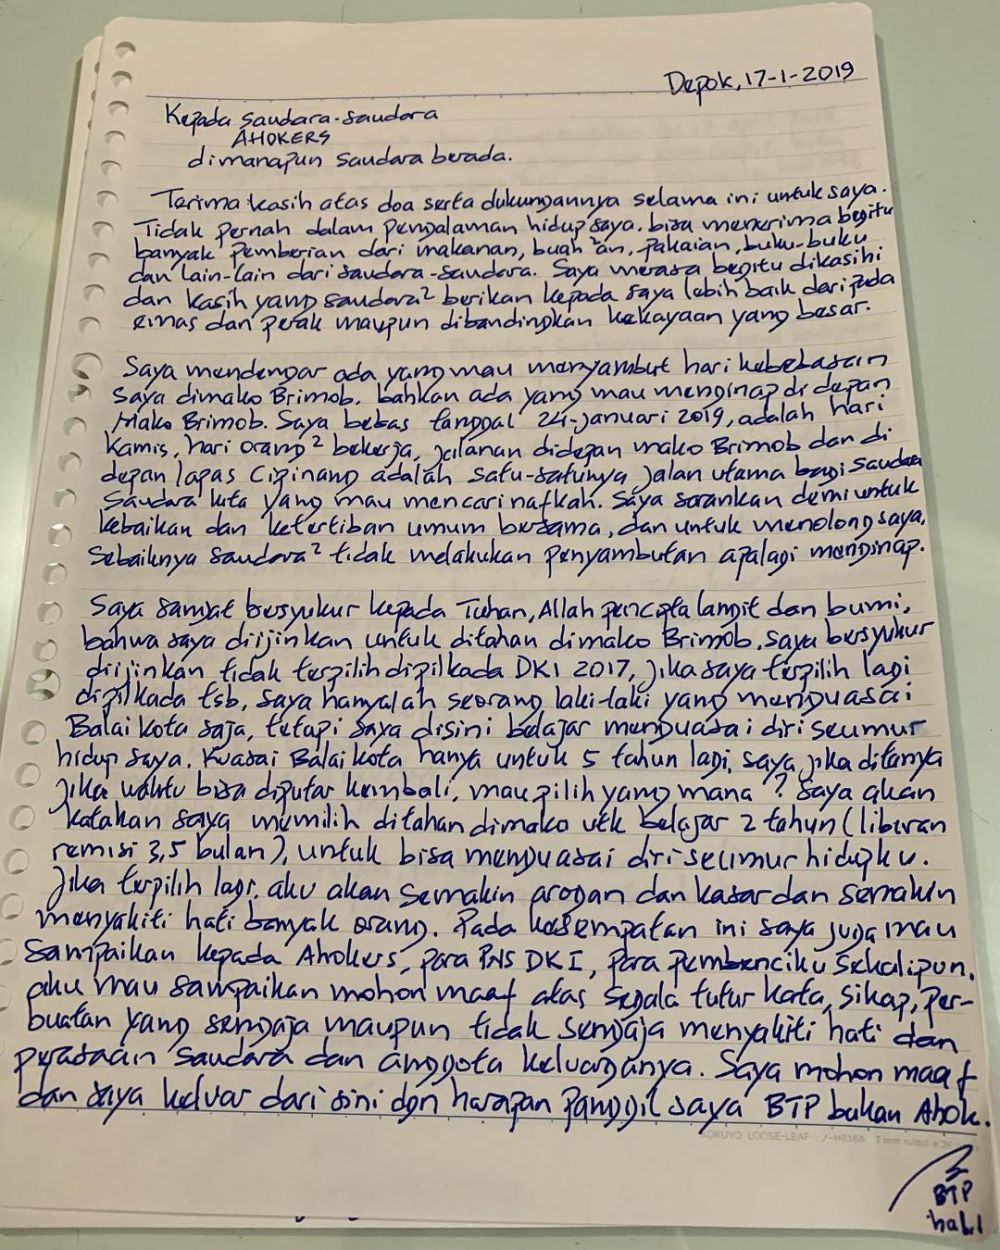 Depok, 17-1-2019
Kepada saudara-saudara
AHOKERS
dimanapun saudara berada.
Terima kasih atas doa serta dukungannya selama ini untuk saya.
Tidak pernah dalam pengalaman hidup saya. bisa menerima begitu
banyak pemberian dari makanan, buah²an, pakaian, buku-buku
dan lain-lain dari saudara-saudara. Saya merasa begitu dikasihi
dan kasih yang saudara² berikan kepada saya lebih baik daripada
emas dan perak maupun dibandingkan kekayaan yang besar.
Saya mendengar ada yang mau menyambut hari kebebasan
saya dimako Brimob. bahkan ada yang mau menginap di depan
Mako Brimob. Saya bebas tanggal 24-januari 2019, adalah hari
Kamis, hari orang² bekerja, jalanan didepan mako Brimob dan di
depan lapas Cipinang adalah satu-satunya jalan utama bagi saudara
saudara kita yang mau mencari nafkah. Saya sarankan demi untuk
kebaikan dan ketertiban umum bersama, dan untuk menolong saya,
sebaiknya saudara² tidak melakukan penyambutan apalagi menginap.
Saya sangat bersyukur kepada Tuhan, Allah pencipta langit dan bumi,
bahwa saya diijinkan untuk ditahan dimako Brimob. saya bersyukur
diijinkan tidak terpilih dipilkada DKI 2017, jika saya terpilih lagi
dipilkada tsb, saya hanyalah seorang laki-laki yang menguasai
Balai kota saja, tetapi saya disini belajar menguasai diri seumur
hidup saya. Kuasai Balai kota hanya untuk 5 tahun lagi. saya jika ditanya
jika waktu bisa diputar kembali, mau pilih yang mana? Saya akan
katakan saya memilih ditahan dimako utk belajar 2 tahun (liburan
remisi 3,5 bulan), untuk bisa menguasai diri seumur hidupku.
Jika terpilih lagi. aku akan semakin arogan dan kasar dan semakin
menyakiti hati banyak orang. Pada kesempatan ini saya juga mau
sampaikan kepada Ahokers, para PNS DKI, para pembenciku sekalipun.
aku mau sampaikan mohon maaf atas segala tutur kata, sikap, per-
buatan yang sengaja maupun tidak sengaja menyakiti hati dan
perasaan saudara dan anggota keluarganya. Saya mohon maaf
dan saya keluar dari sini dgn harapan panggil saya BTP bukan Ahok.
KOKUYO LOOSE-LEAF
BTP
hal.1